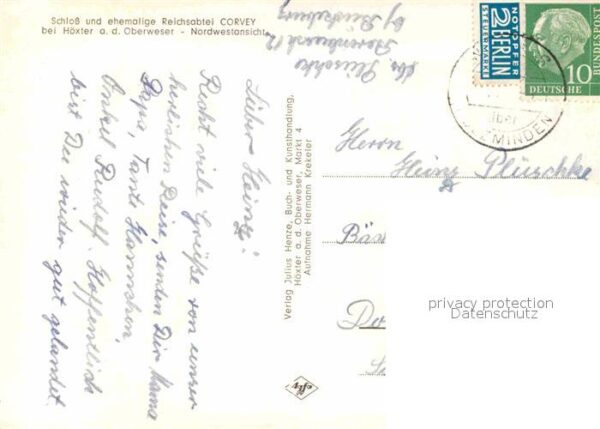 Schloß und ehemalige Reichsabtei CORVEY
bei Höxter a. d. Oberweser - Nordwestansicht
Lieber Heinz!
Recht viele Grüße von unser
herrlichen Reise, senden Dir Mama
Papa, Tante Hannchen,
Onkel Rudolf. Hoffentlich
bist Du wieder gut gelandet.
Verlag Julius Henze, Buch- und Kunsthandlung,
Höxter a. d. Oberweser, Markt 4
Aufnahme Hermann Krekeler
Abs. Plüschke
b/ Bückeburg
NOTOPFER
2 BERLIN
STEUERMARKE
DEUTSCHE
BUNDESPOST
10
HOLZMINDEN
Herrn
Heinz Plüschke
privacy protection
Datenschutz